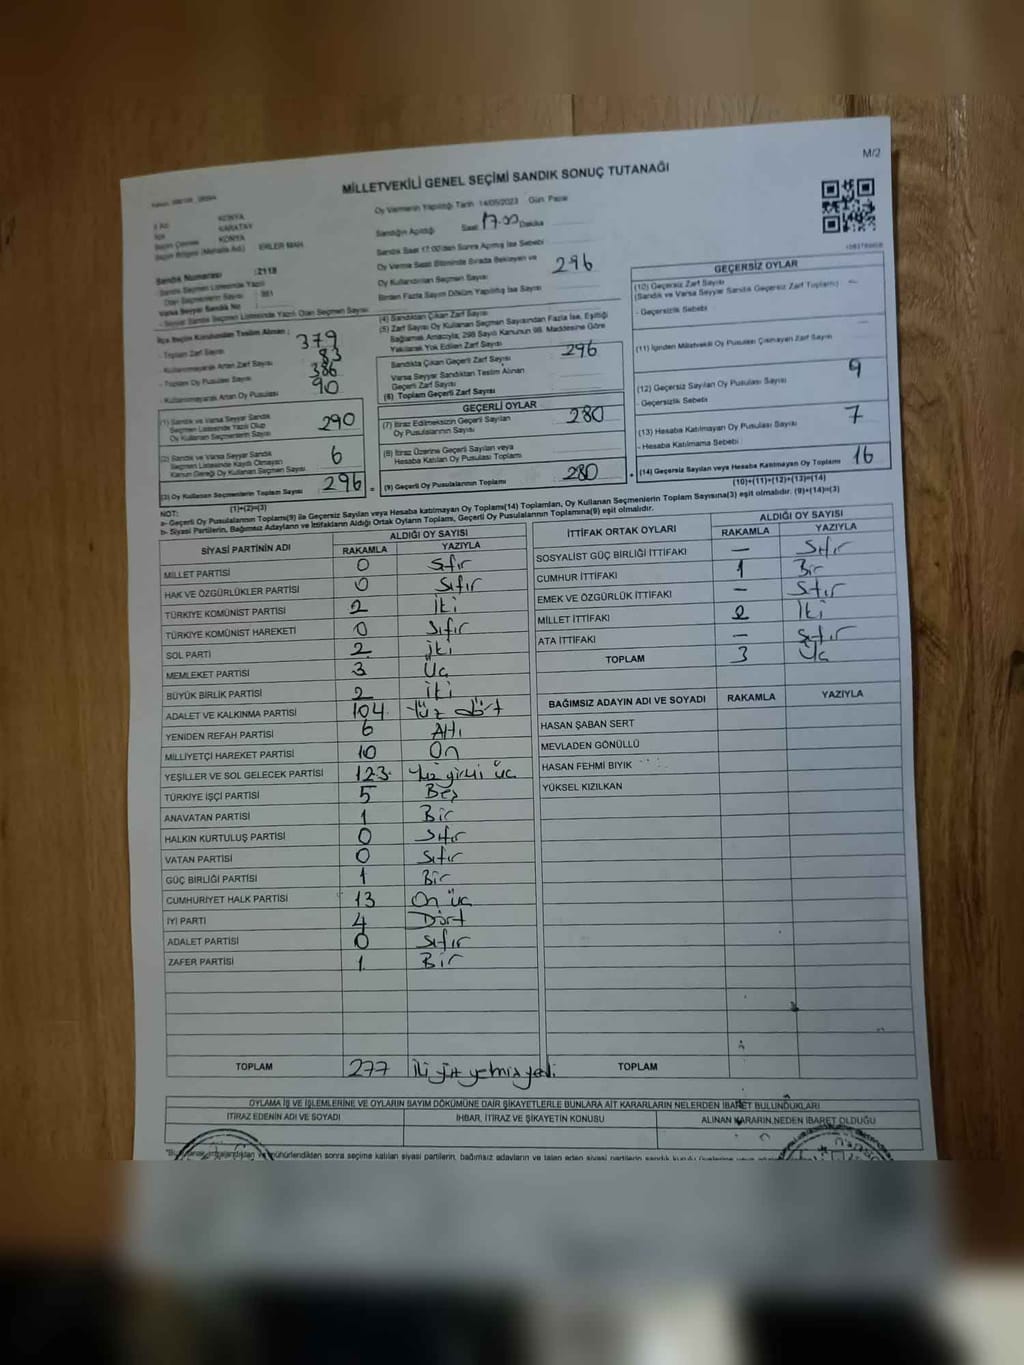 M/2
MİLLETVEKİLİ GENEL SEÇİMİ SANDIK SONUÇ TUTANAĞI
KONYA
KARATAY
KONYA
ERLER MAH.
Sandık Numarası : 2118
Oy Vermenin Yapıldığı Tarih 14/05/2023 Gün Pazar
Sandığın Açıldığı Saat 17.00 Dakika
Sandık Saat 17:00'den Sonra Açılmış İse Sebebi
Oy Verme Saati Bitiminde Sırada Bekleyen ve
Oy Kullandırılan Seçmen Sayısı 296
Birden Fazla Sayım Döküm Yapılmış İse Sayısı
Sandık Seçmen Listesinde Yazılı
Olan Seçmenlerin Sayısı : 381
Varsa Seyyar Sandık No
İlçe Seçim Kurulundan Teslim Alınan ;
- Toplam Zarf Sayısı 379
- Kullanılmayarak Artan Zarf Sayısı 83
- Toplam Oy Pusulası Sayısı 386
- Kullanılmayarak Artan Oy Pusulası 90
(1) Sandık ve Varsa Seyyar Sandık
Seçmen Listesinde Yazılı Olup
Oy Kullanan Seçmenlerin Sayısı 290
(2) Sandık ve Varsa Seyyar Sandık
Seçmen Listesinde Kaydı Olmayan
Kanun Gereği Oy Kullanan Seçmen Sayısı 6
(3) Oy Kullanan Seçmenlerin Toplam Sayısı 296
(1)+(2)=(3)
(4) Sandıktan Çıkan Zarf Sayısı
(5) Zarf Sayısı Oy Kullanan Seçmen Sayısından Fazla İse, Eşitliği
Sağlamak Amacıyla; 298 Sayılı Kanunun 98. Maddesine Göre
Yakılarak Yok Edilen Zarf Sayısı
Sandıkta Çıkan Geçerli Zarf Sayısı 296
Varsa Seyyar Sandıktan Teslim Alınan
Geçerli Zarf Sayısı
(6) Toplam Geçerli Zarf Sayısı
GEÇERLİ OYLAR
(7) İtiraz Edilmeksizin Geçerli Sayılan
Oy Pusulalarının Sayısı 280
(8) İtiraz Üzerine Geçerli Sayılan veya
Hesaba Katılan Oy Pusulası Toplamı
(9) Geçerli Oy Pusulalarının Toplamı 280
GEÇERSİZ OYLAR
(10) Geçersiz Zarf Sayısı –
(Sandık ve Varsa Seyyar Sandık Geçersiz Zarf Toplamı)
- Geçersizlik Sebebi
(11) İçinden Milletvekili Oy Pusulası Çıkmayan Zarf Sayısı
(12) Geçersiz Sayılan Oy Pusulası Sayısı 9
- Geçersizlik Sebebi
(13) Hesaba Katılmayan Oy Pusulası Sayısı 7
- Hesaba Katılmama Sebebi
(14) Geçersiz Sayılan veya Hesaba Katılmayan Oy Toplamı 16
(10)+(11)+(12)+(13)=(14)
NOT:
a- Geçerli Oy Pusulalarının Toplamı(9) ile Geçersiz Sayılan veya Hesaba katılmayan Oy Toplamı(14) Toplamları, Oy Kullanan Seçmenlerin Toplam Sayısına(3) eşit olmalıdır. (9)+(14)=(3)
b- Siyasi Partilerin, Bağımsız Adayların ve İttifakların Aldığı Ortak Oyların Toplamı, Geçerli Oy Pusulalarının Toplamına(9) eşit olmalıdır.
SİYASİ PARTİNİN ADI ALDIĞI OY SAYISI
RAKAMLA YAZIYLA
MİLLET PARTİSİ 0 Sıfır
HAK VE ÖZGÜRLÜKLER PARTİSİ 0 Sıfır
TÜRKİYE KOMÜNİST PARTİSİ 2 İki
TÜRKİYE KOMÜNİST HAREKETİ 0 Sıfır
SOL PARTİ 2 İki
MEMLEKET PARTİSİ 3 Üç
BÜYÜK BİRLİK PARTİSİ 2 İki
ADALET VE KALKINMA PARTİSİ 104 Yüz dört
YENİDEN REFAH PARTİSİ 6 Altı
MİLLİYETÇİ HAREKET PARTİSİ 10 On
YEŞİLLER VE SOL GELECEK PARTİSİ 123 Yüz yirmi üç
TÜRKİYE İŞÇİ PARTİSİ 5 Beş
ANAVATAN PARTİSİ 1 Bir
HALKIN KURTULUŞ PARTİSİ 0 Sıfır
VATAN PARTİSİ 0 Sıfır
GÜÇ BİRLİĞİ PARTİSİ 1 Bir
CUMHURİYET HALK PARTİSİ 13 On üç
İYİ PARTİ 4 Dört
ADALET PARTİSİ 0 Sıfır
ZAFER PARTİSİ 1 Bir
TOPLAM 277 İki yüz yetmiş yedi
İTTİFAK ORTAK OYLARI ALDIĞI OY SAYISI
RAKAMLA YAZIYLA
SOSYALİST GÜÇ BİRLİĞİ İTTİFAKI — Sıfır
CUMHUR İTTİFAKI 1 Bir
EMEK VE ÖZGÜRLÜK İTTİFAKI – Sıfır
MİLLET İTTİFAKI 2 İki
ATA İTTİFAKI – Sıfır
TOPLAM 3 Üç
BAĞIMSIZ ADAYIN ADI VE SOYADI RAKAMLA YAZIYLA
HASAN ŞABAN SERT
MEVLADEN GÖNÜLLÜ
HASAN FEHMİ BIYIK
YÜKSEL KIZILKAN
TOPLAM
OYLAMA İŞ VE İŞLEMLERİNE VE OYLARIN SAYIM DÖKÜMÜNE DAİR ŞİKAYETLERLE BUNLARA AİT KARARLARIN NELERDEN İBARET BULUNDUKLARI
İTİRAZ EDENİN ADI VE SOYADI İHBAR, İTİRAZ VE ŞİKAYETİN KONUSU ALINAN KARARIN NEDEN İBARET OLDUĞU